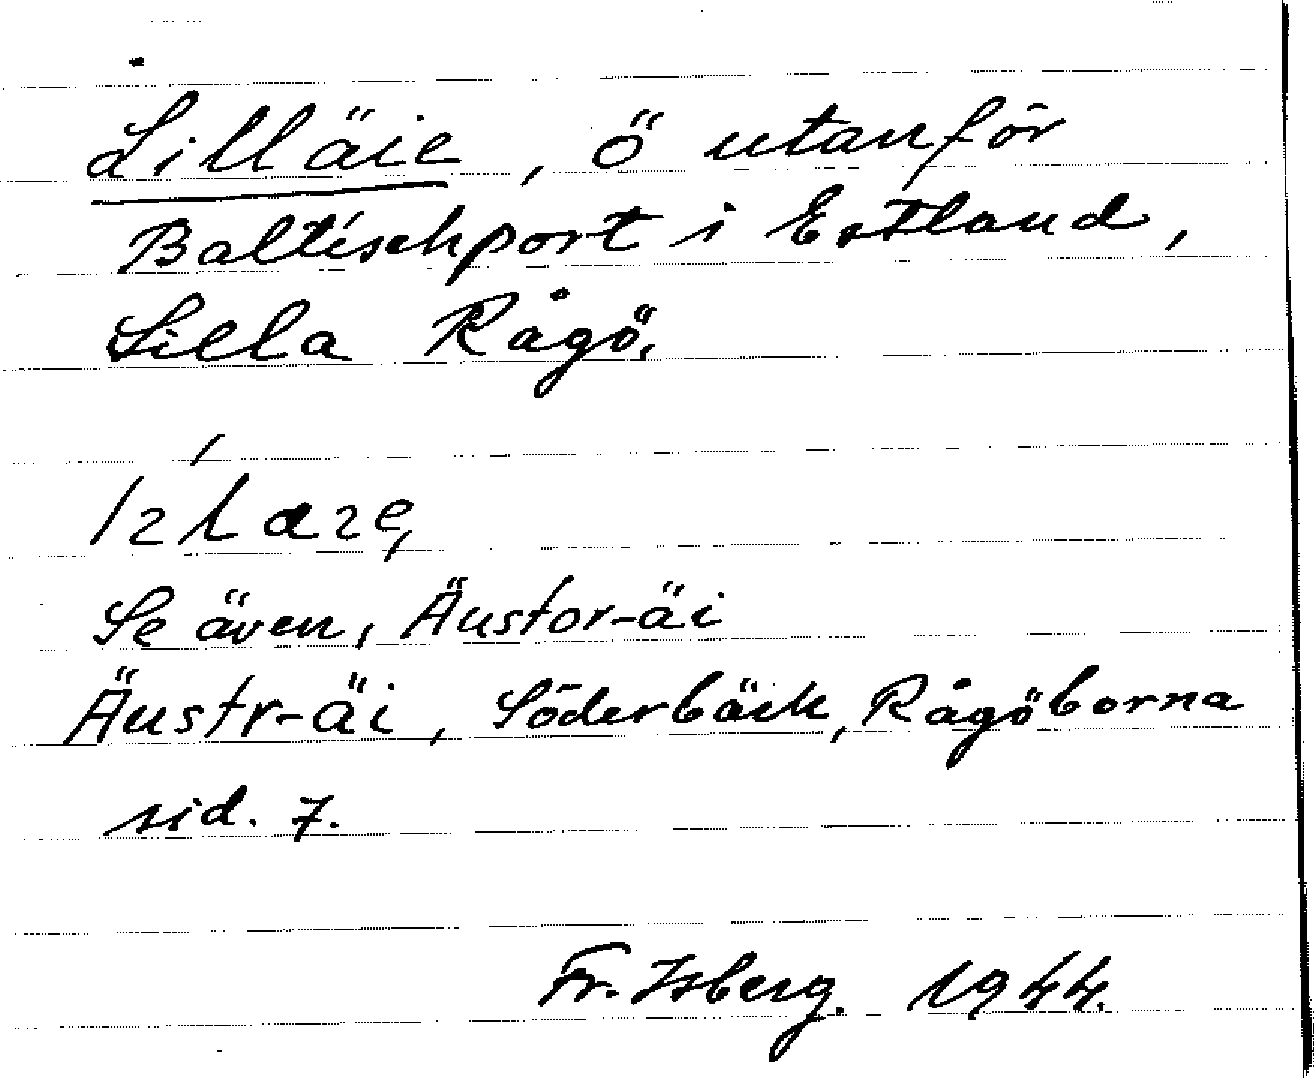 Lilläie, ö utanför
Baltischport i Estland,
Lilla Rågö.
Se även, Äustor-äi
Äustr-äi, Söderbäck, Rågöborna
sid. 7.
Fr. Isberg. 1944.